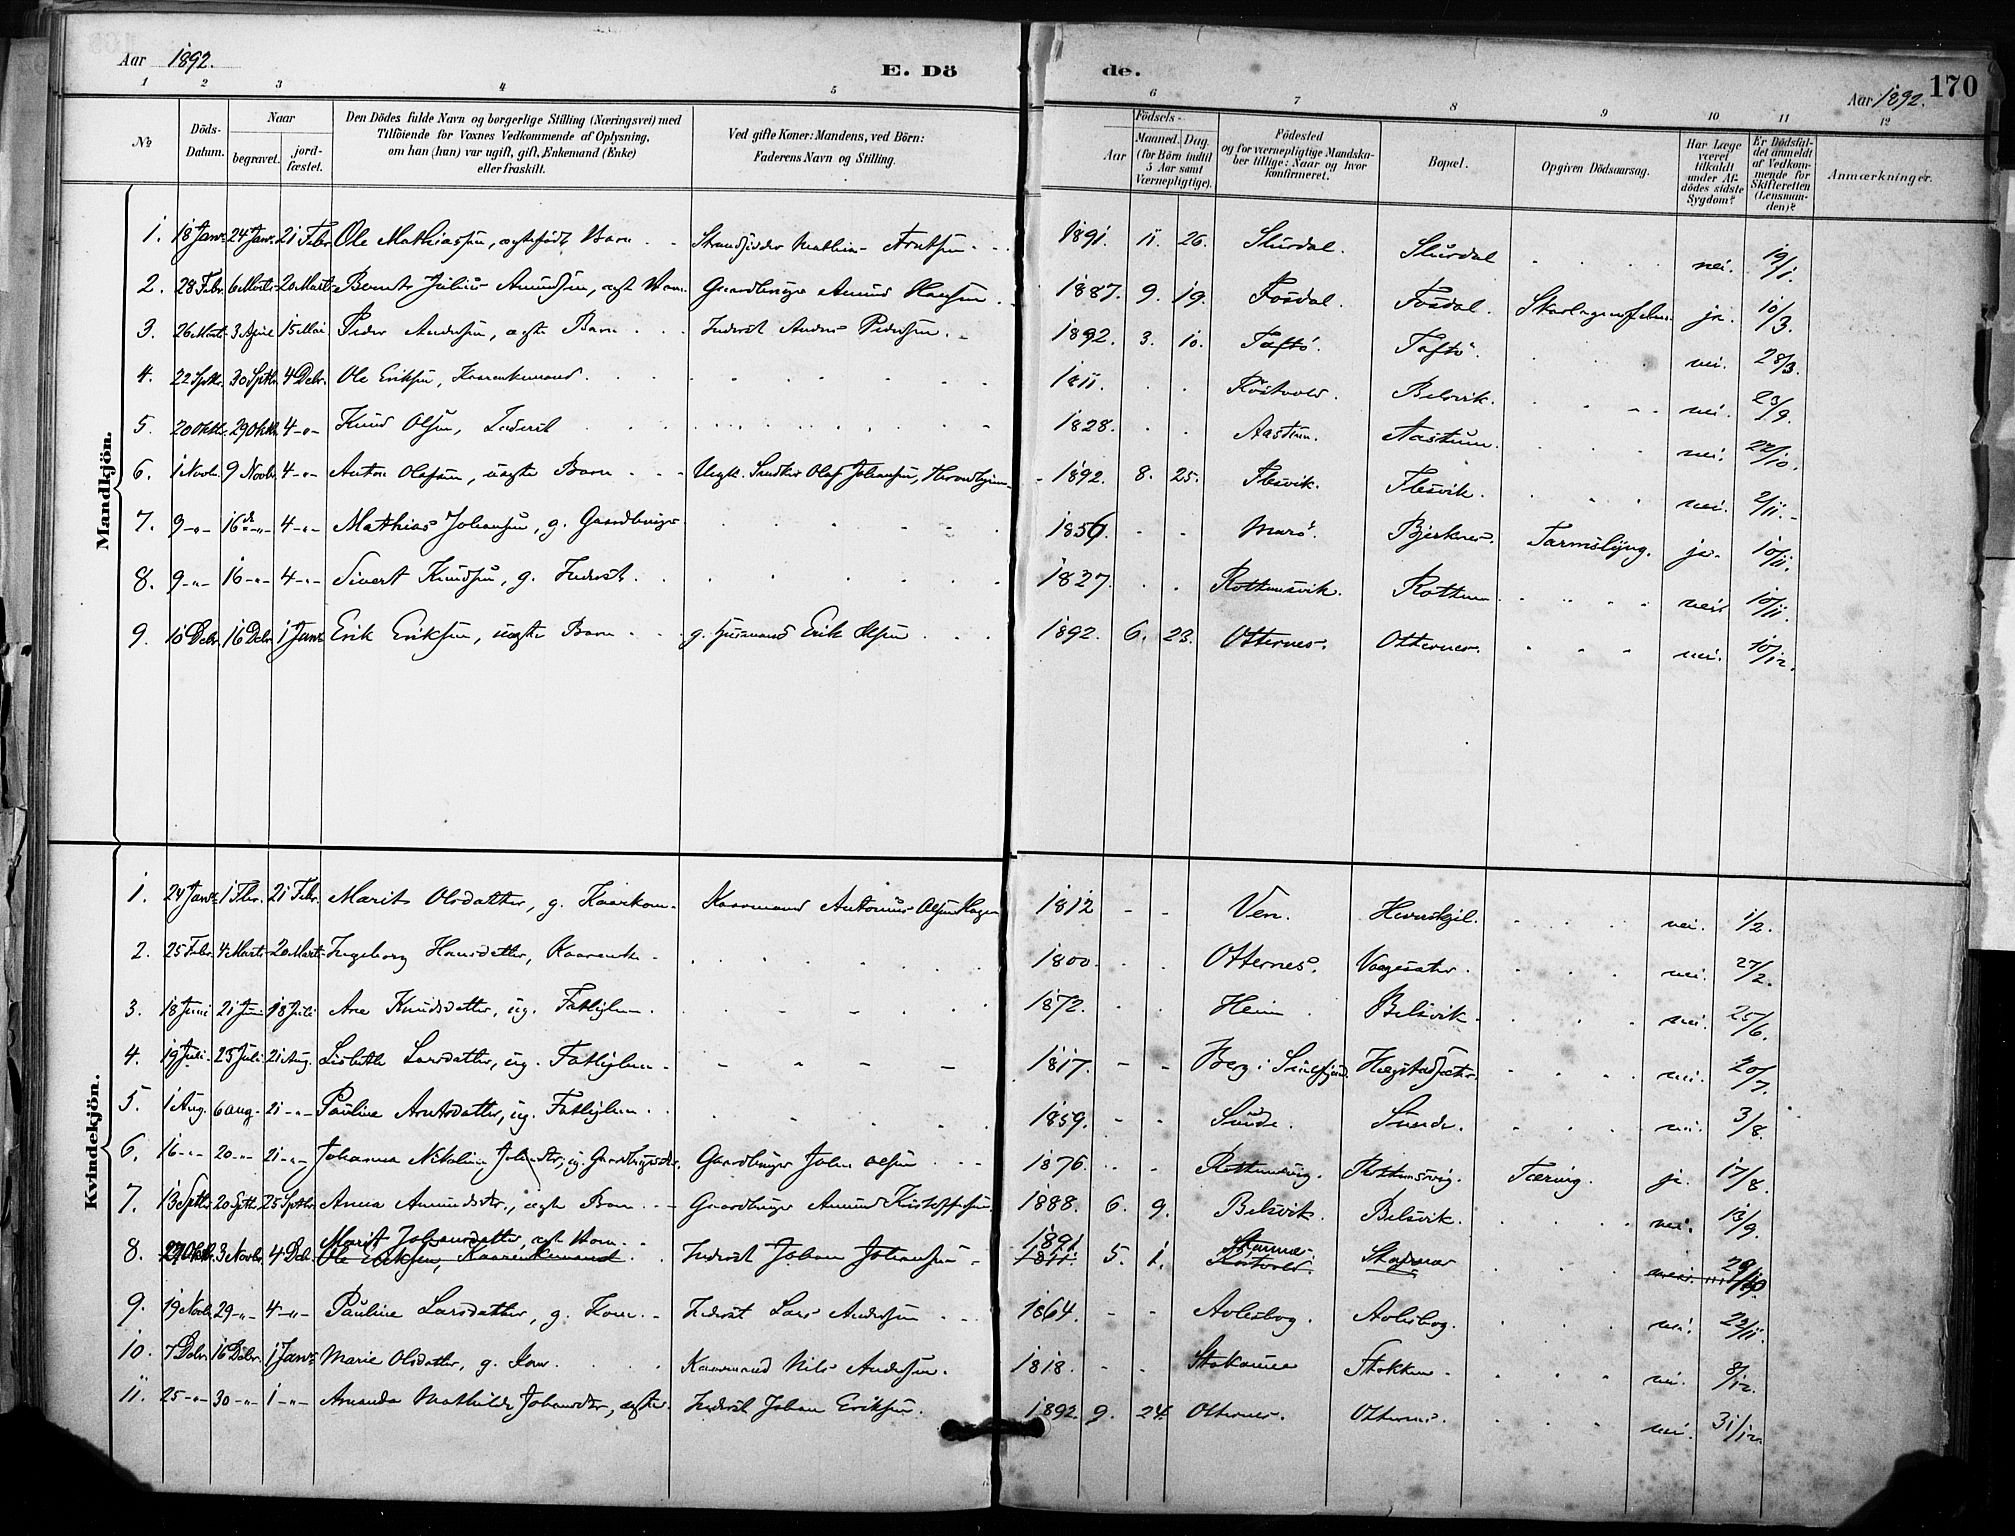 Aar 1892.
E. Dö
de.
Aar 1892.
170
1 2 3 4 5 6 7 8 9 10 11 12
No
Döds-Datum.
Naar
begravet.
jord-fæstet.
Den Dödes fulde Navn og borgerlige Stilling (Næringsvei) med
Tilföiende for Voxnes Vedkommende af Oplysning,
om han (hun) var ugift, gift, Enkemand (Enke)
eller fraskilt.
Ved gifte Koner: Mandens, ved Börn:
Faderens Navn og Stilling.
Födsels-
Aar
Maaned. Dag.
(for Börn indtil
5 Aar samt
Værnepligtige).
Födested
og for værnepligtige Mandska-
ber tillige: Naar og hvor
konfirmeret.
Bopæl.
Opgiven Dödsaarsag.
Har Læge
været
tilkaldt
under Af-
dödes sidste
Sygdom?
Er Dödsfal-
det anmeldt
af Vedkom-
mende for
Skifteretten
(Lensman-
den)?
Anmærkninger.
Mandkjön.
1. 18 Janr. 24 Janr. 21 Febr. Ole Mathiassen, ægtefødt Barn Strandsidder Mathias Arntsen 1891. 11. 26. Slurdal. Slurdal nei. 19/1.
2. 28 Febr. 6 Marts 20 Marts Bernt Julius Amundsen, ægte Barn Gaardbruger Amund Hansen 1887. 9. 19. Fosdal. Fosdal. ja. 10/3.
3. 26 Marts 3 April 15 Mai Peder Andersen, ægte Barn Inderst Anders Pedersen. 1892. 3. 10. Taftö. Taftö. nei. 28/3.
4. 22 Septbr. 30 Septbr. 4 Debr. Ole Eriksen, Kaarenkemand 1811. Röstvold. Belsvik. nei. 23/9.
5. 20 Oktbr. 29 Oktbr. 4 -"- Knud Olsen, Inderst 1828. Aastum. Aastum. nei. 22/10.
6. 1 Novbr. 9 Novbr. 4 -"- Anton Olafsen, uægte Barn Ungk. Olaf Johansen, 1892. 8. 25. Flesvik. Flesvik. nei. 2/11.
7. 9 -"- 16 de -"- 4 -"- Mathias Johansen, g. Gaardbruger 1856. Marö. Bjerknes. Tarmslyng. ja. 10/11.
8. 9 -"- 16 -"- 4 -"- Sivert Knudsen, g. Inderst. 1827. Rottemsvik. Rottem nei. 10/11.
9. 10 Debr. 16 Debr. 1 Janr. Erik Eriksen, uægte Barn g. Husmand Erik Olsen 1892. 6. 23. Otternes. Otternes. nei. 10/12.
Kvindekjön.
1. 24 Janr. 1 Febr. 21 Febr. Marit Olsdatter, g. Kaarkone. Kaarmand Antonius Olsen Hagen 1812 Ven. nei. 1/2.
2. 25 Febr. 4 Marts 20 Marts Ingeborg Hansdatter, Kaarenke 1800. Otternes. Vaagesæter. nei. 27/2.
3. 18 Juni 21 Juni 18 Juli Ane Knudsdatter, ug. Fattiglem. 1872. Heim Belsvik. nei. 25/6.
4. 19 Juli 25 Juli 21 Aug. Lisbeth Larsdatter, ug. Fattiglem. 1817. Berg i nei. 20/7.
5. 1 Aug. 6 Aug. 21 -"- Pauline Arntsdatter, ug. Fattiglem 1859. Sunde. Sunde. nei. 3/8.
6. 16 -"- 20 -"- 21 -"- Johanna Nikoline Johnsdtr, ug. Gaardbrugerdtr. Gaardbruger John Olsen 1876. Rottemsvig. Rottemsvig. Tæring. ja. 17/8.
7. 13 Septbr. 20 Septbr. 25 Septbr. Anna Amundsdtr., ægte Barn Gaardbruger Amund Kristoffersen. 1888. 6. 9. Belsvik. Belsvik. nei. 13/9.
8. 27 Oktbr. 3 Novbr. 4 Debr. Marit Johansdatter, ægte Barn Ole Eriksen, Kaarenkemand Inderst Johan Johansen 1891 1811. 5. 1. Stamnes. Röstvold. nei. 29/10
9. 19 Novbr. 29 -"- 4 -"- Pauline Larsdatter, g. Kone Inderst Lars Andersen 1864. Avlesbog. Avlesbog. nei. 22/11.
10. 7 Debr. 16 Debr. 1 Janr. Marie Olsdatter, g. Kone Kaarmand Nils Andersen. 1818. Stokken nei. 8/12.
11. 25 -"- 30 -"- 1 -"- Amanda Mathilde Johansdtr, ægte. Inderst Johan Eriksen. 1892. 9. 24. Otternes. Otternes. nei. 31/12.